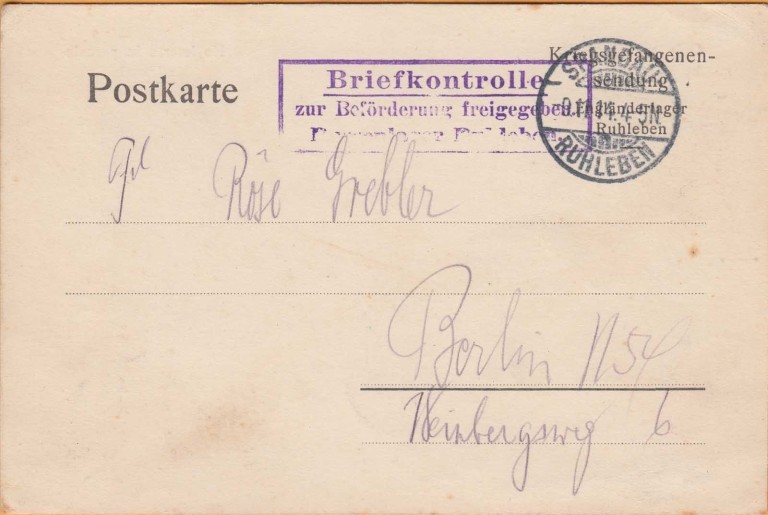 Postkarte
Kriegsgefangenen-
sendung
Engländerlager
Ruhleben
Briefkontrolle
zur Beförderung freigegeben.
SPANDAU
RUHLEBEN
Frl Röse Grebler
Berlin N 54
Weinbergsweg 6